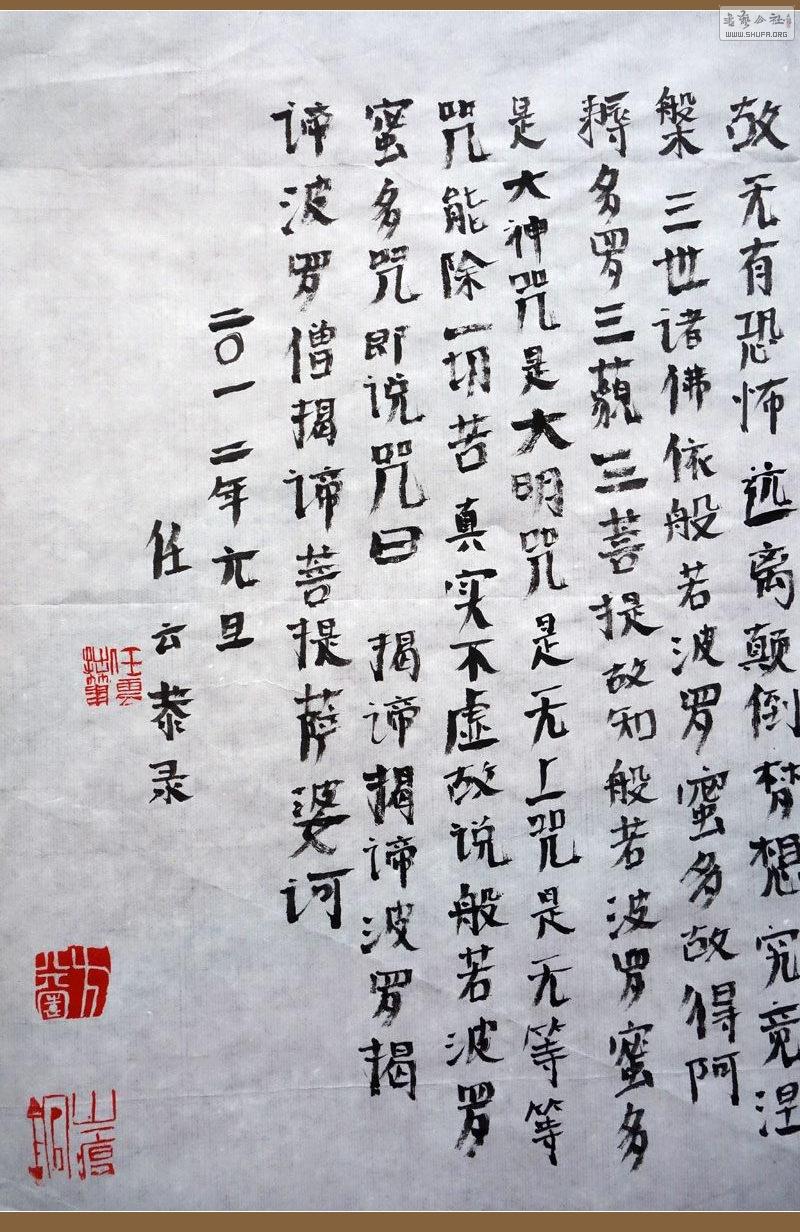 故无有恐怖远离颠倒梦想究竟涅
槃 三世诸佛依般若波罗蜜多故得阿
耨多罗三藐三菩提故知般若波罗蜜多
是大神咒是大明咒是无上咒是无等等
咒能除一切苦真实不虚故说般若波罗
蜜多咒即说咒曰 揭谛揭谛波罗揭
谛波罗僧揭谛菩提萨婆诃
二〇一二年元旦
任云恭录
书藝公社
WWW.SHUFA.ORG